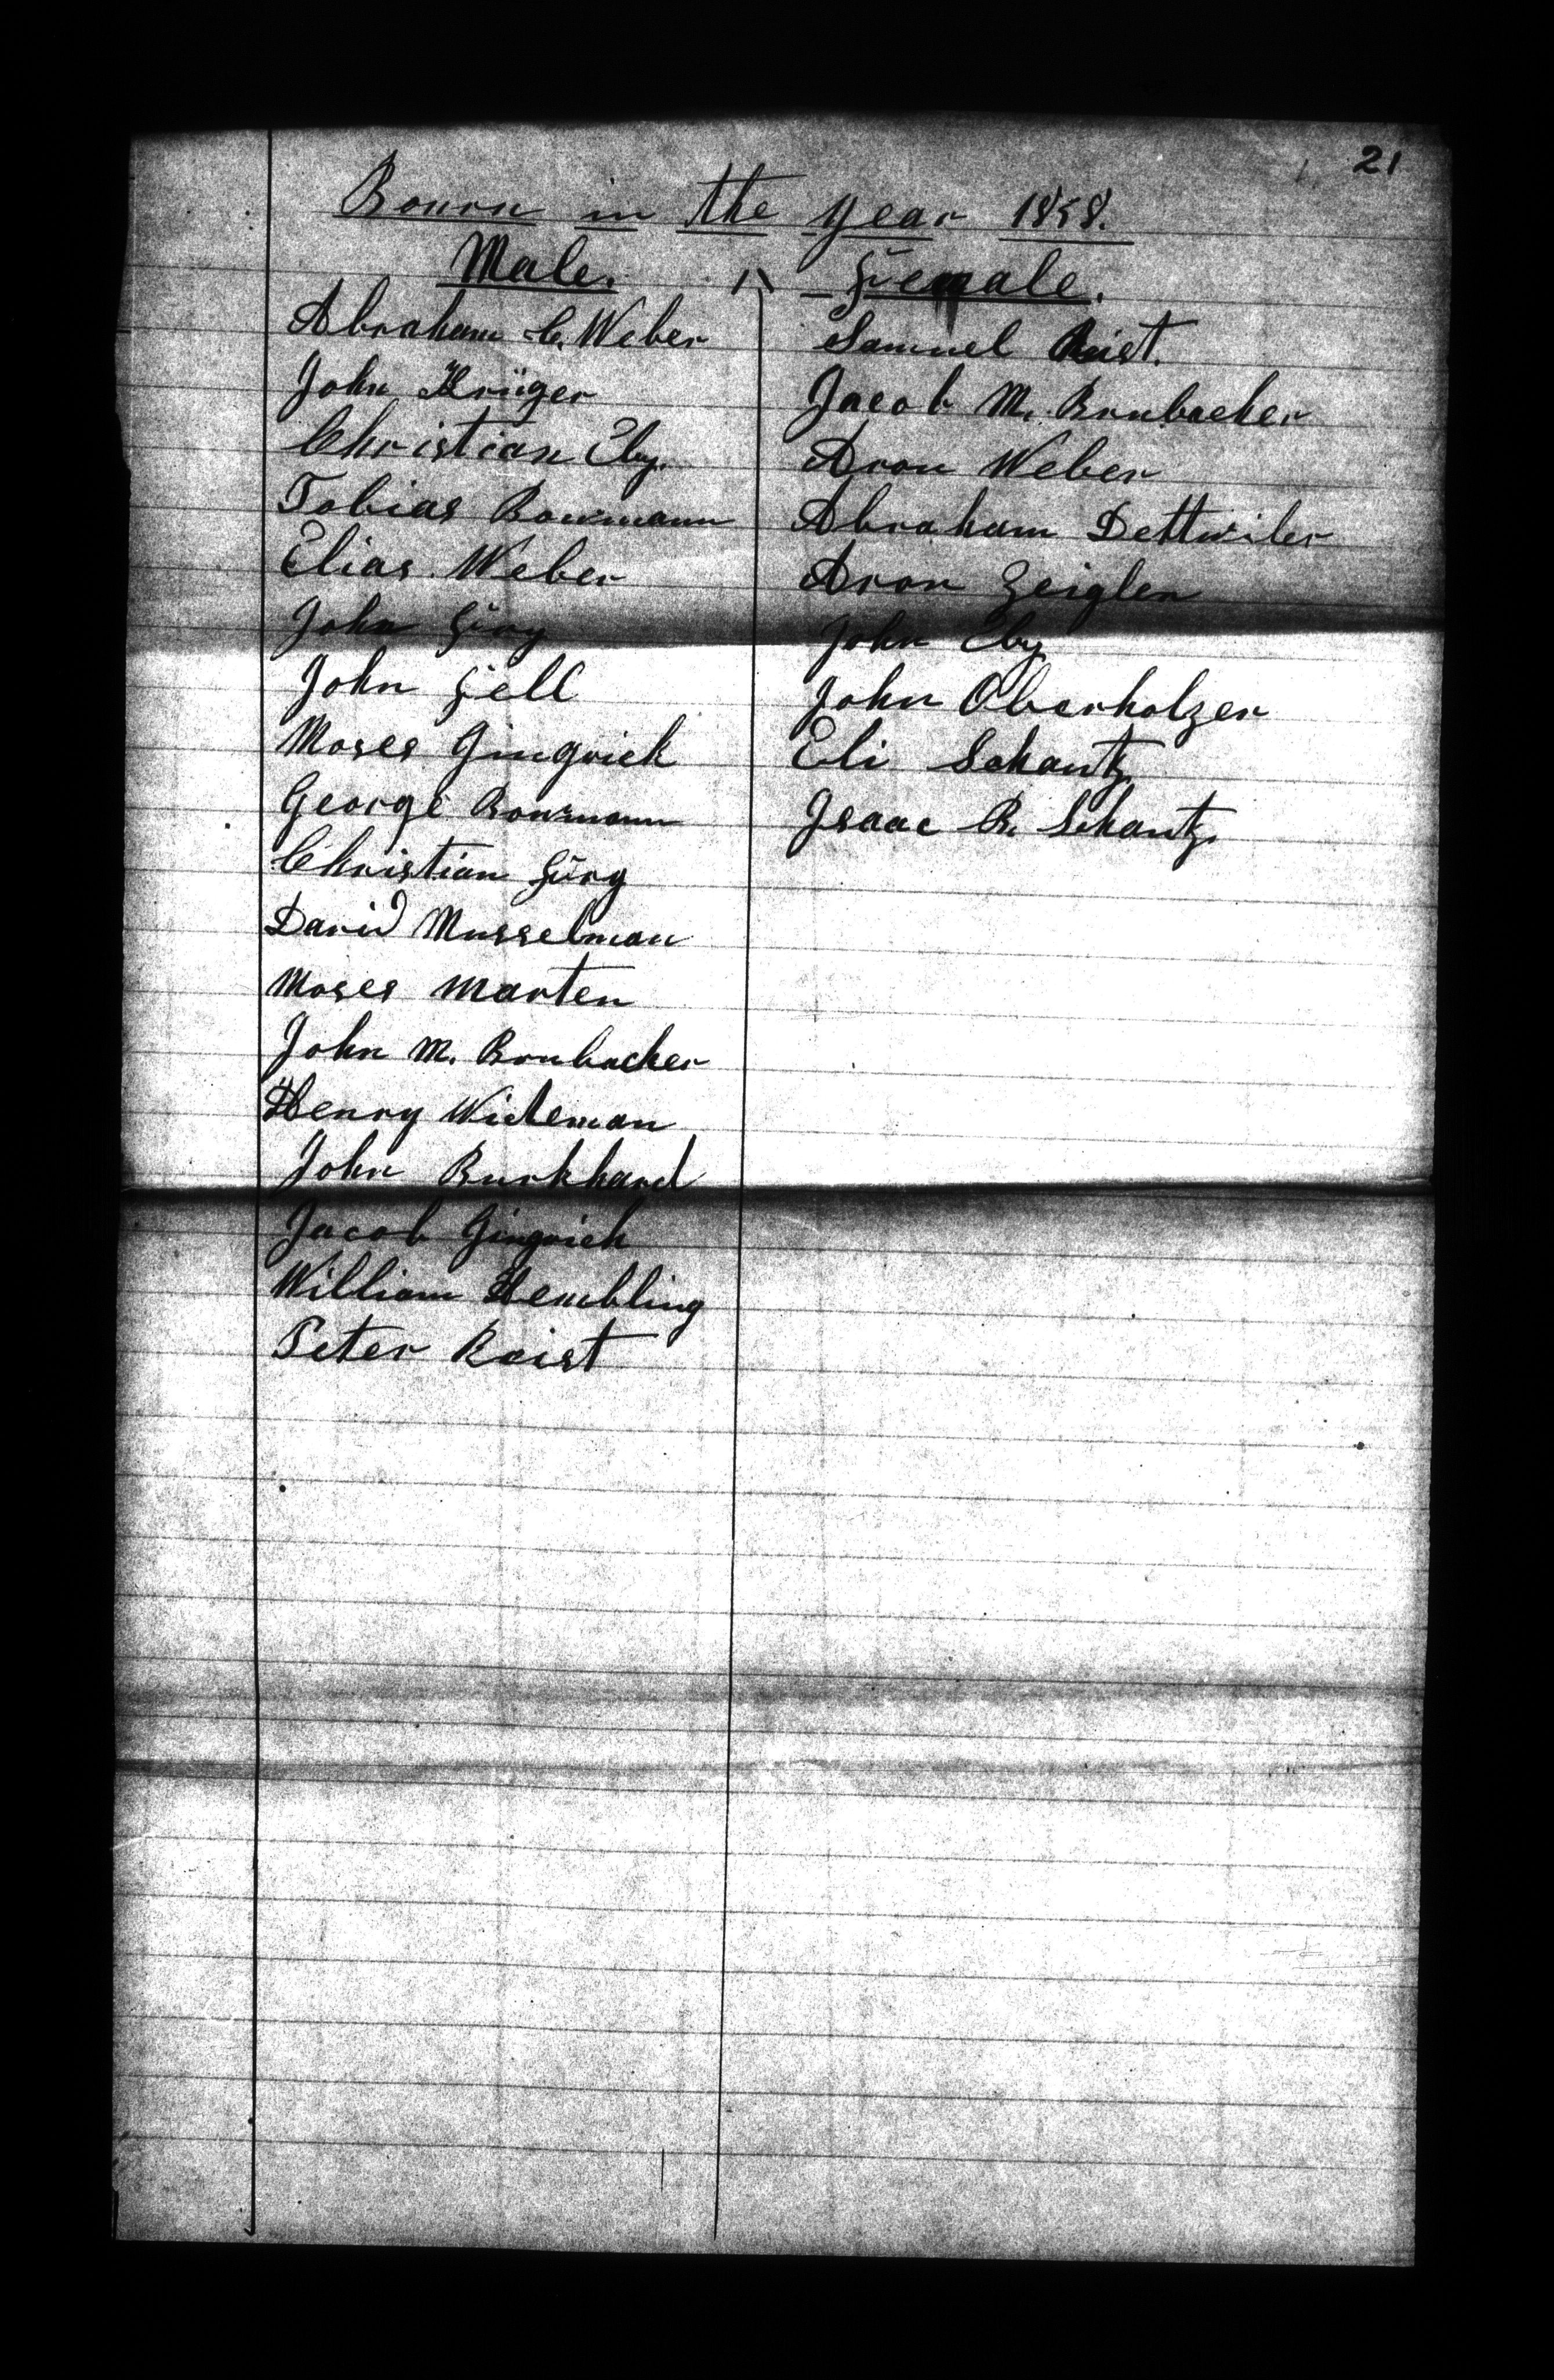 21
Bourn in the year 1858.
Male.
Abraham C. Weber
John Krüger
Christian Eby.
Tobias Bowmann
Elias Weber
John Fury
John Fell
Moses Gingrich
George Bowmann
Christian Fury
David Musselman
Moses Marten
John M. Brubacher
Henry Wideman
John Burkhard
Jacob Gingrich
William Hembling
Peter Reist
Female.
Samuel Reist.
Jacob M. Brubacher
Aron Weber
Abraham Dettwiler
Aron Zeigler
John Eby
John Oberholzer
Eli Schantz
Isaac B. Schantz.